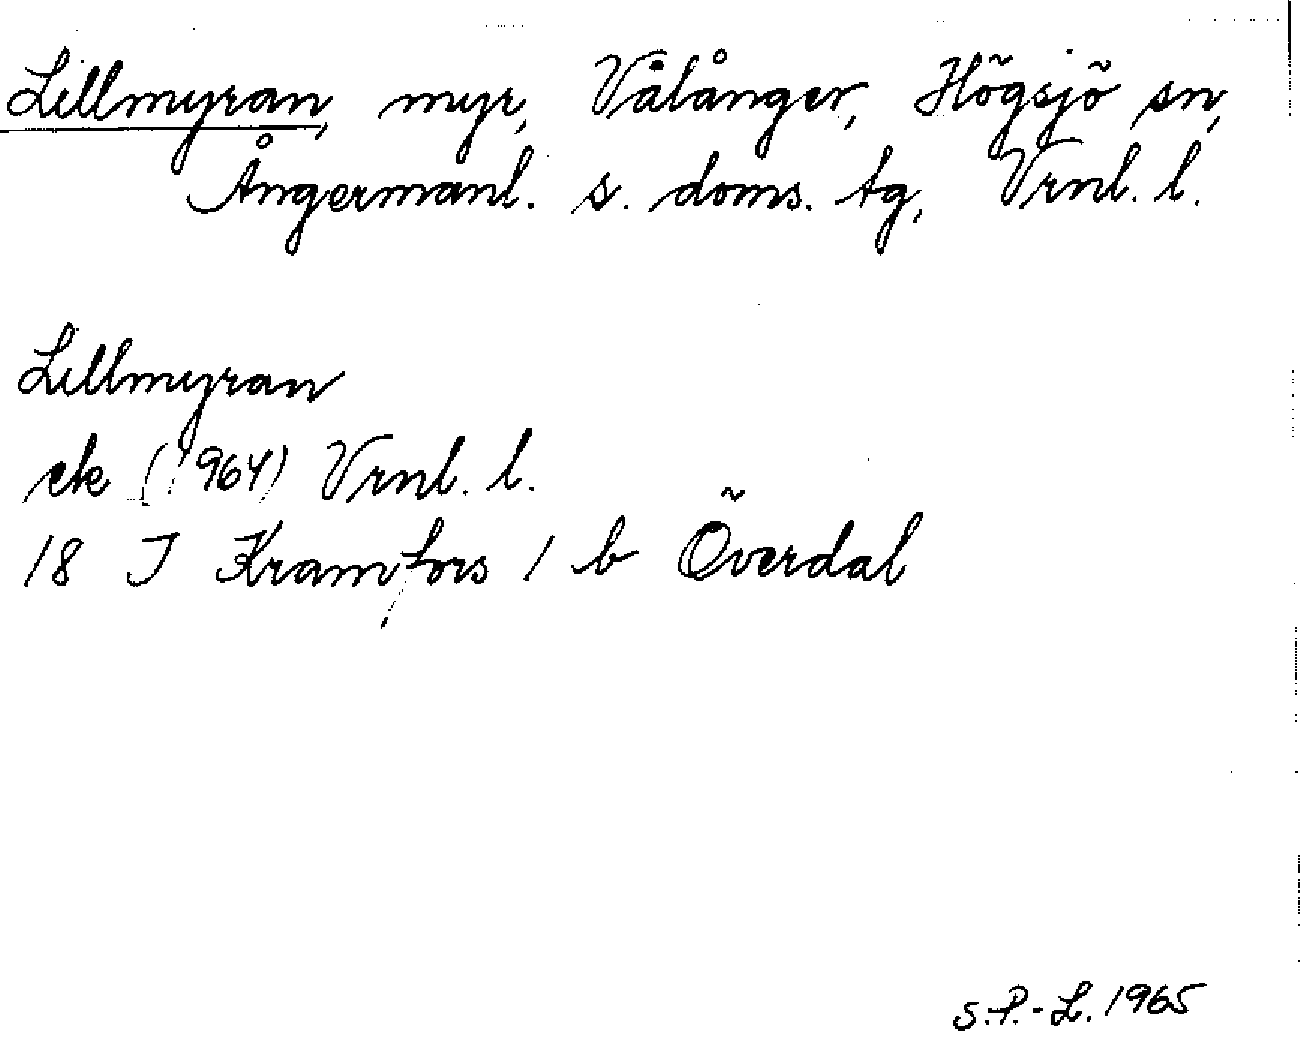 Lillmyran, myr, Vålånger, Högsjö sn,
Ångermanl. s. doms. tg, Vrnl. l.
Lillmyran
ek (1964) Vrnl. l.
18 I Kramfors 1 b Överdal
S.P.-L. 1965